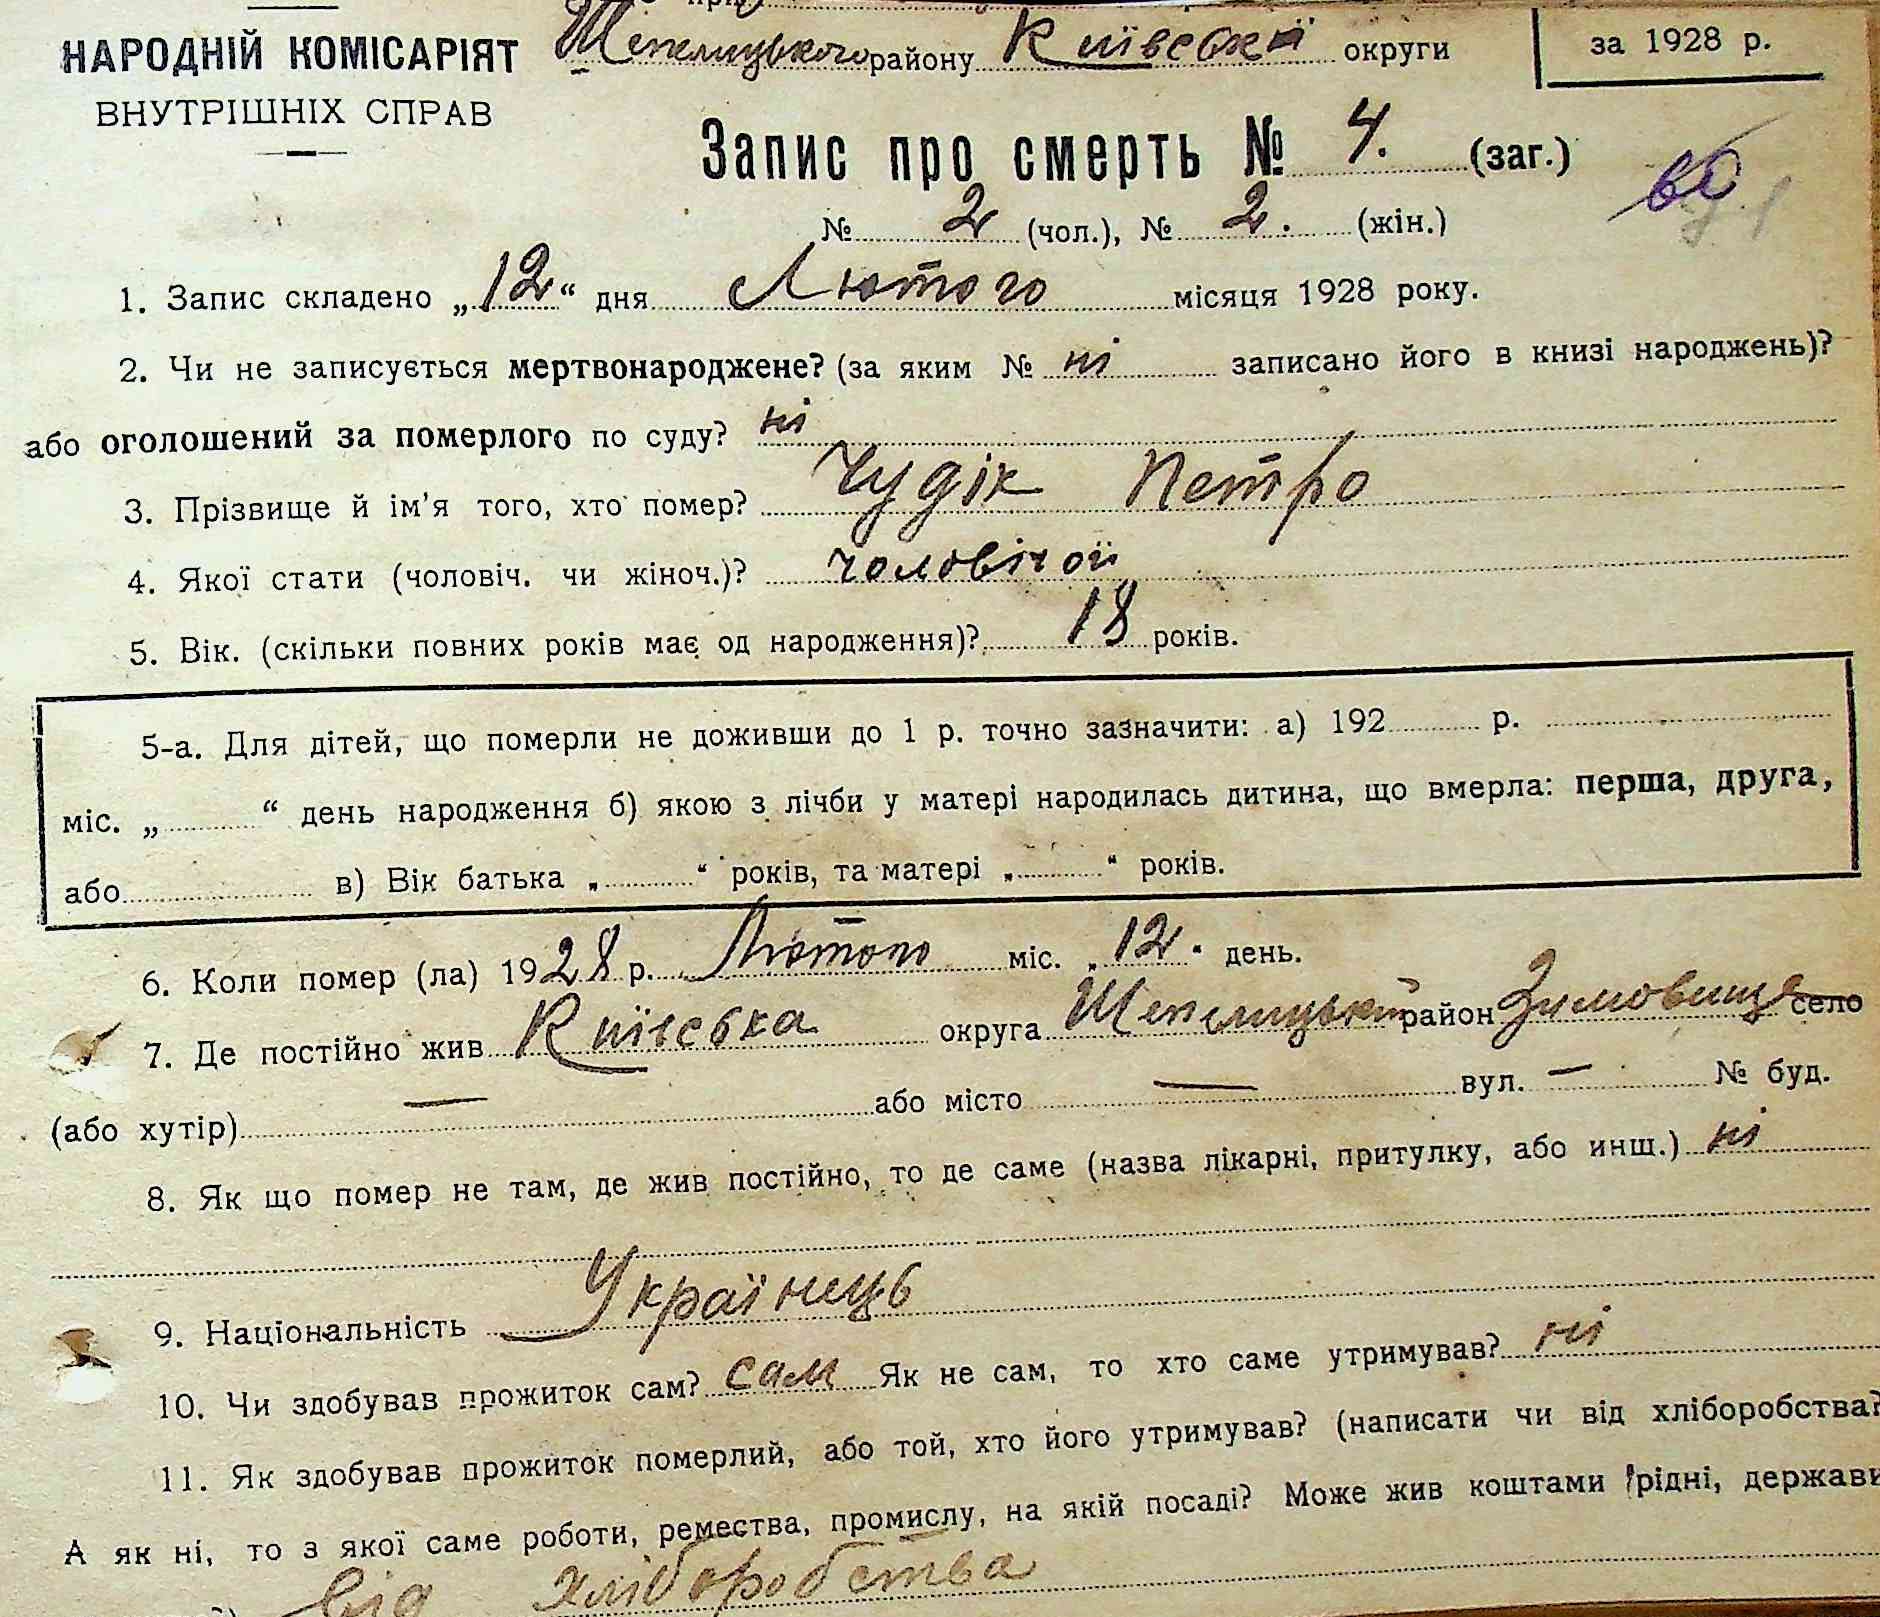 НАРОДНІЙ КОМІСАРІЯТ
ВНУТРІШНІХ СПРАВ
Шепелицького району Київської округи
за 1928 р.
Запис про смерть № 4. (заг.)
№ 2 (чол.), № 2. (жін.)
1. Запис складено „12“ дня Лютого місяця 1928 року.
2. Чи не записується мертвонароджене? (за яким № ні записано його в книзі народжень)?
або оголошений за померлого по суду? ні
3. Прізвище й ім'я того, хто помер? Чудік Петро
4. Якої стати (чоловіч. чи жіноч.)? чоловічой
5. Вік. (скільки повних років має од народження)? 18 років.
5-а. Для дітей, що померли не доживши до 1 р. точно зазначити: а) 192 р.
міс. „ “ день народження б) якою з лічби у матері народилась дитина, що вмерла: перша, друга,
або в) Вік батька „ “ років, та матері „ “ років.
6. Коли помер (ла) 1928 р. Лютого міс. „12“ день.
7. Де постійно жив Київська округа Шепелицький район Зимовище село
(або хутір) — або місто — вул. — № буд.
8. Як що помер не там, де жив постійно, то де саме (назва лікарні, притулку, або инш.) ні
9. Національність Українець
10. Чи здобував прожиток сам? сам Як не сам, то хто саме утримував? ні
11. Як здобував прожиток померлий, або той, хто його утримував? (написати чи від хліборобства?
А як ні, то з якої саме роботи, ремества, промислу, на якій посаді? Може жив коштами рідні, держави
від хліборобства